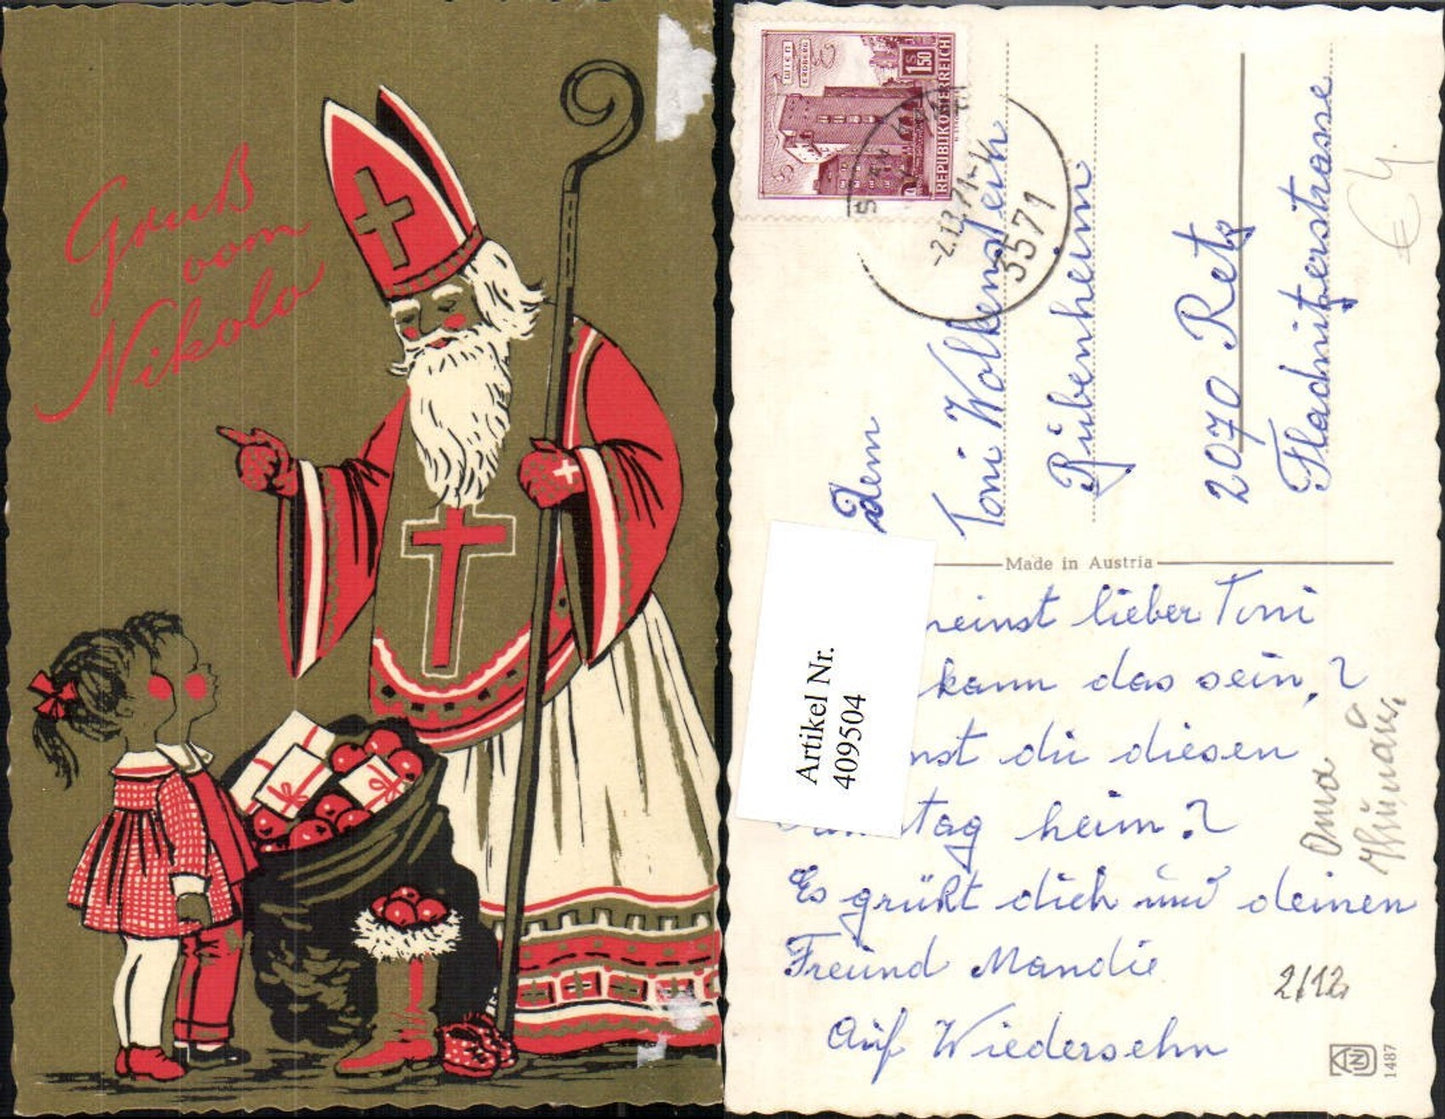 Gruß
vom
Nikolo
WIEN
ERDBERG
S
1.50
REPUBLIK ÖSTERREICH
-2.12.71-
3571
Dem
Toni Wolkenstein
Bubenheim
2070 Retz
Fladnitzerstrasse
€ 4.
Made in Austria
Artikel Nr.
409504
meinst lieber Toni
kann das sein?
du diesen
tag heim?
Es grüßt dich und deinen
Freund Mandie
Auf Wiedersehn
Oma
2/12
1487